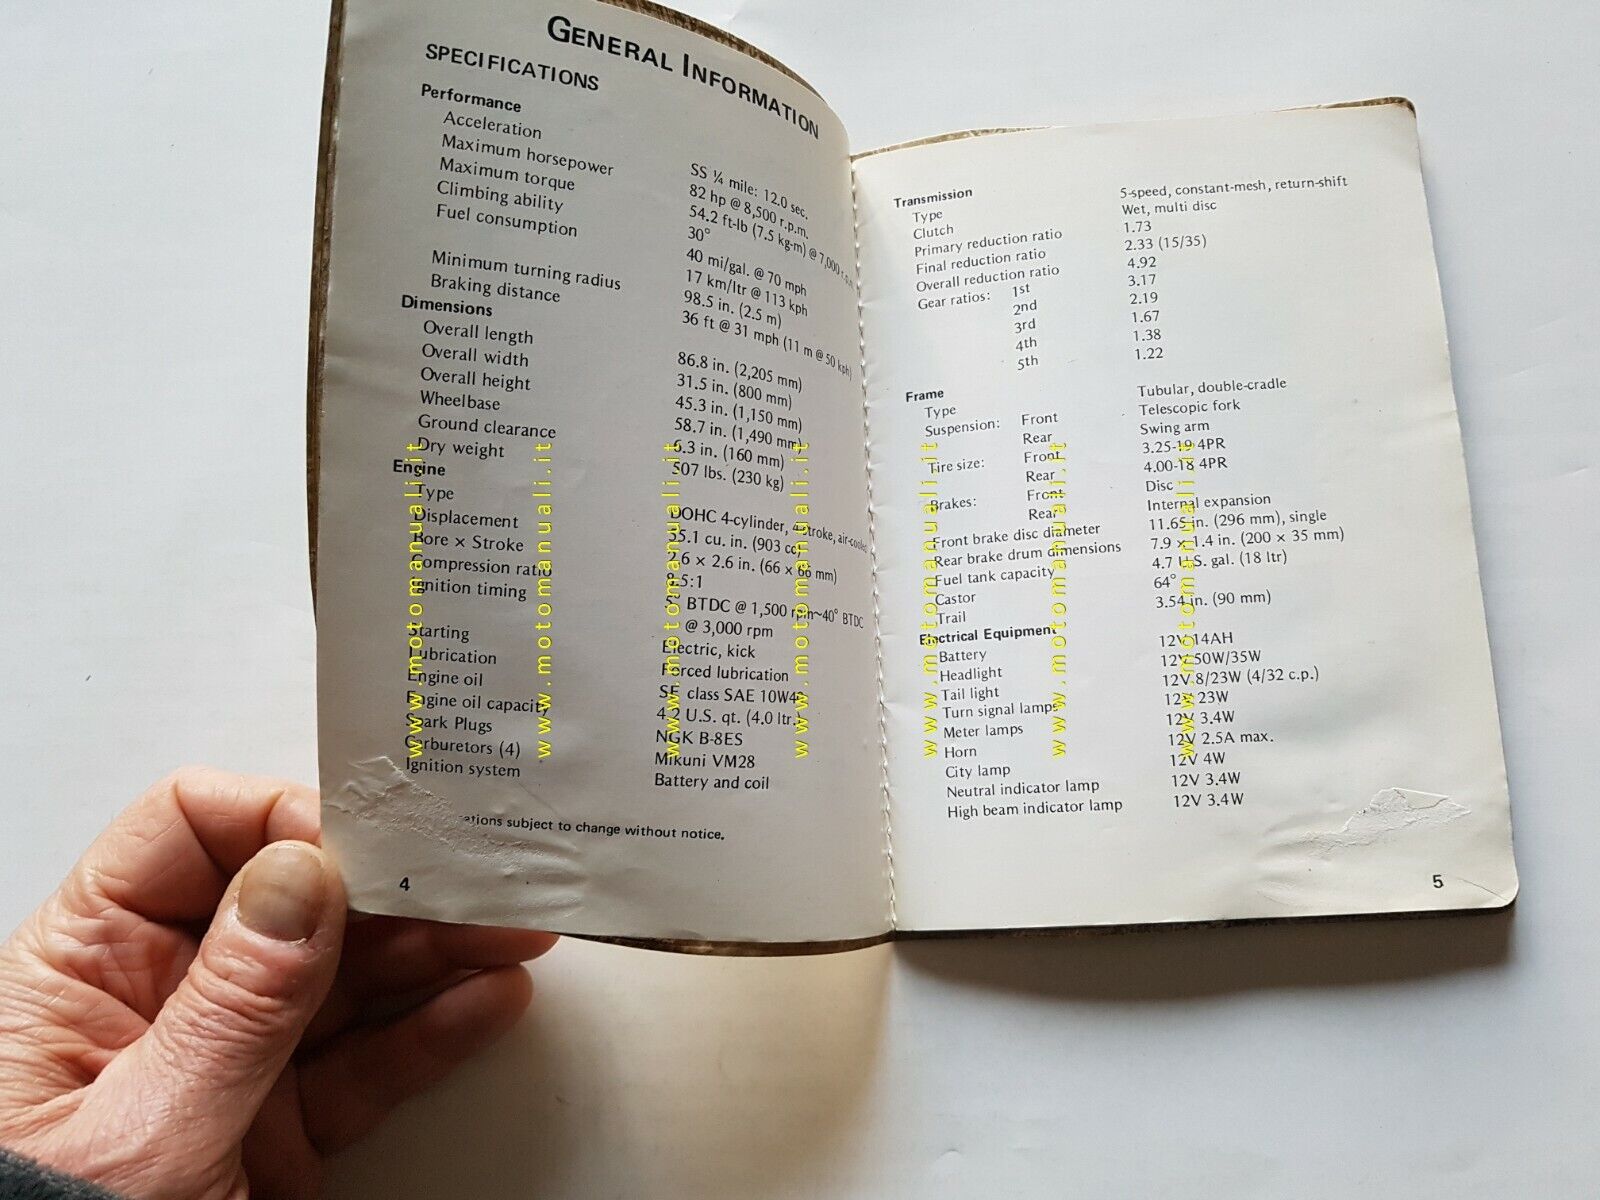 GENERAL INFORMATION
SPECIFICATIONS
Performance
Acceleration SS ¼ mile: 12.0 sec.
Maximum horsepower 82 hp @ 8,500 r.p.m.
Maximum torque 54.2 ft-lb (7.5 kg-m) @ 7,000 r.p.m.
Climbing ability 30°
Fuel consumption 40 mi/gal. @ 70 mph
17 km/ltr @ 113 kph
Minimum turning radius 98.5 in. (2.5 m)
Braking distance 36 ft @ 31 mph (11 m @ 50 kph)
Dimensions
Overall length 86.8 in. (2,205 mm)
Overall width 31.5 in. (800 mm)
Overall height 45.3 in. (1,150 mm)
Wheelbase 58.7 in. (1,490 mm)
Ground clearance 6.3 in. (160 mm)
Dry weight 507 lbs. (230 kg)
Engine
Type DOHC 4-cylinder, 4-stroke, air-cooled
Displacement 55.1 cu. in. (903 cc)
Bore × Stroke 2.6 × 2.6 in. (66 × 66 mm)
Compression ratio 8.5:1
Ignition timing 5° BTDC @ 1,500 rpm~40° BTDC
@ 3,000 rpm
Starting Electric, kick
Lubrication Forced lubrication
Engine oil SE class SAE 10W40
Engine oil capacity 4.2 U.S. qt. (4.0 ltr.)
Spark Plugs NGK B-8ES
Carburetors (4) Mikuni VM28
Ignition system Battery and coil
subject to change without notice.
4
Transmission
Type 5-speed, constant-mesh, return-shift
Clutch Wet, multi disc
Primary reduction ratio 1.73
Final reduction ratio 2.33 (15/35)
Overall reduction ratio 4.92
Gear ratios: 1st 3.17
2nd 2.19
3rd 1.67
4th 1.38
5th 1.22
Frame
Type Tubular, double-cradle
Suspension: Front Telescopic fork
Rear Swing arm
Tire size: Front 3.25-19 4PR
Rear 4.00-18 4PR
Brakes: Front Disc
Rear Internal expansion
Front brake disc diameter 11.65 in. (296 mm), single
Rear brake drum dimensions 7.9 × 1.4 in. (200 × 35 mm)
Fuel tank capacity 4.7 U.S. gal. (18 ltr)
Castor 64°
Trail 3.54 in. (90 mm)
Electrical Equipment
Battery 12V 14AH
Headlight 12V 50W/35W
Tail light 12V 8/23W (4/32 c.p.)
Turn signal lamps 12V 23W
Meter lamps 12V 3.4W
Horn 12V 2.5A max.
City lamp 12V 4W
Neutral indicator lamp 12V 3.4W
High beam indicator lamp 12V 3.4W
5
www.motomanuali.it
www.motomanuali.it
www.motomanuali.it
www.motomanuali.it
www.motomanuali.it
www.motomanuali.it
www.motomanuali.it